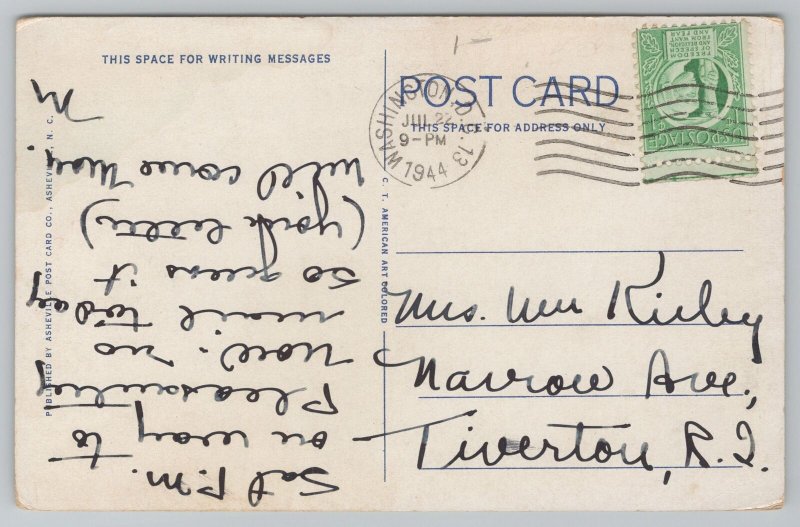 THIS SPACE FOR WRITING MESSAGES
Sat P.M.
on way to
Pleasantley
now. no
mail today
so guess it
(your letter)
will come Mon.
M
PUBLISHED BY ASHEVILLE POST CARD CO., ASHEVILLE, N. C.
C. T. AMERICAN ART COLORED
POST CARD
THIS SPACE FOR ADDRESS ONLY
WASHINGTON, D.C. 13
JUL 22
9-PM
1944
FREEDOM
OF SPEECH
AND RELIGION,
FROM WANT
AND FEAR
US POSTAGE
Mrs. Wm Kirley
Narrow Ave.,
Tiverton, R.I.